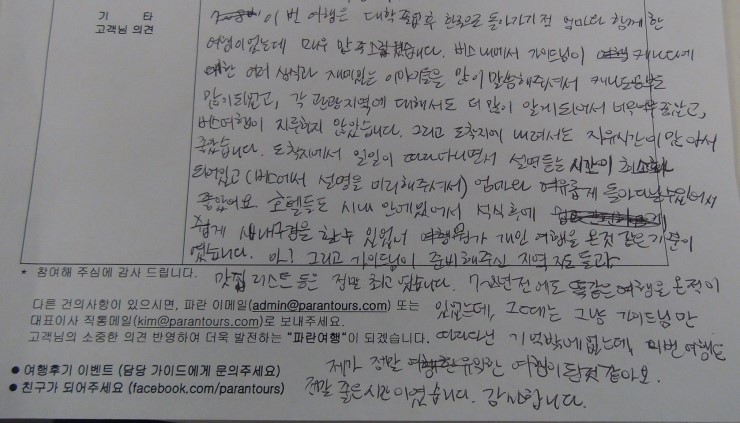 기 타
고객님 의견
이번 여행은 대학 졸업 후 한국으로 돌아가기 전 엄마와 함께 한
여행이었는데 매우 만족스러웠습니다. 버스 내에서 가이드님이 캐나다에
대한 여러 상식과 재미있는 이야기들을 많이 말씀해주셔서
많이 되었고, 각 관광지역에 대해서도 더 많이 알게되어서 너무 좋았고,
버스여행이 지루하지 않았습니다. 그리고 도착지에 내려서는 자유시간이 많아서
좋았습니다. 도착지에서 일일이 따라다니면서 설명듣는 시간이 최소화
되어있고 (버스에서 설명을 미리해주셔서) 엄마와 여유롭게 돌아다닐수있어서
좋았어요. 호텔들도 시내 안에있어서 석식후에
쉽게 시내구경을 할수 있었어 개인 여행을 온것 같은 기분이
였습니다. 아! 그리고 가이드님이 준비해주신 지역 지도들과
맛집 리스트 등은 정말 최고였습니다. 7~8년전에도 똑같은 여행을 온적이
있었는데, 그때는 그냥 가이드님만
따라다닌 기억밖에없는데, 이번 여행은
제가 정말 여행이 된것 같아요.
정말 좋은시간이였습니다. 감사합니다.
* 참여해 주심에 감사 드립니다.
다른 건의사항이 있으시면, 파란 이메일(admin@parantours.com) 또는
대표이사 직통메일(kim@parantours.com)로 보내주세요.
고객님의 소중한 의견 반영하여 더욱 발전하는 "파란여행"이 되겠습니다.
● 여행후기 이벤트 (담당 가이드에게 문의주세요)
● 친구가 되어주세요 (facebook.com/parantours)